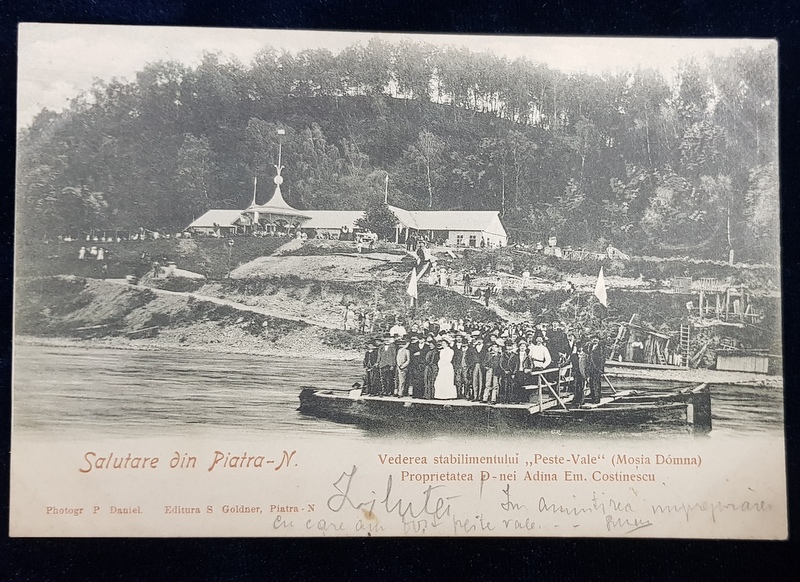 Salutare din Piatra-N.
Vederea stabilimentului „Peste-Vale“ (Moșia Dómna)
Proprietatea D-nei Adina Em. Costinescu
Photogr P Daniel. Editura S Goldner, Piatra-N
! In amintirea
cu care am fost peste vale...